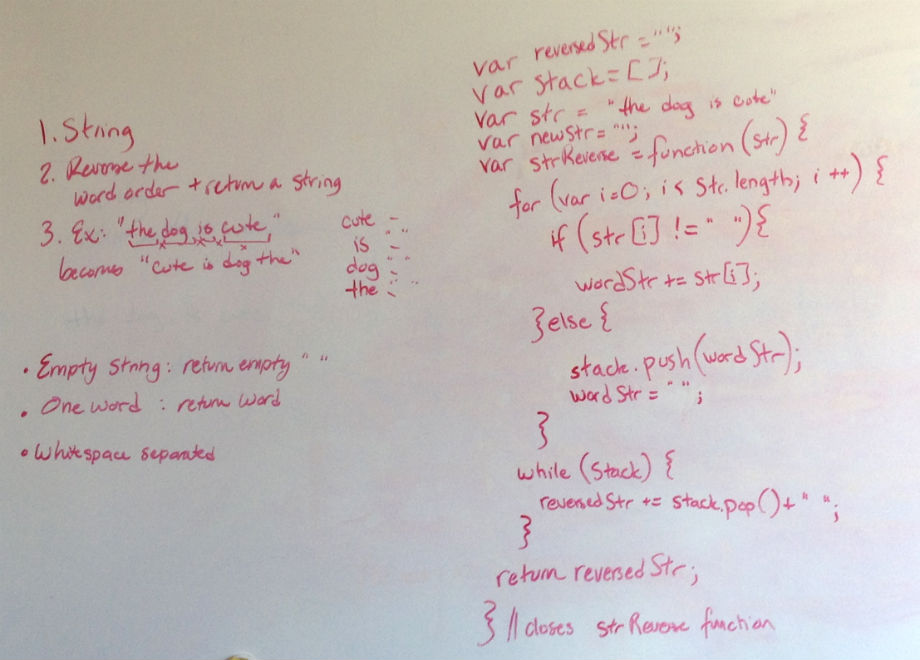 1. String
2. Reverse the
word order + return a string
3. Ex: "the dog is cute,"
becomes "cute is dog the"
cute -
is " "
dog " "
the " "
• Empty string: return empty " "
• One word : return word
• Whitespace separated
var reversedStr = "";
var stack = [];
var str = "the dog is cute"
var newStr = "";
var strReverse = function (str) {
for (var i=0; i < str.length; i ++) {
if (str[i] != " "){
wordStr += str[i];
}else {
stack.push(wordStr);
wordStr = " ";
}
while (stack) {
reversedStr += stack.pop()+ " ";
}
return reversedStr;
} // closes strReverse function